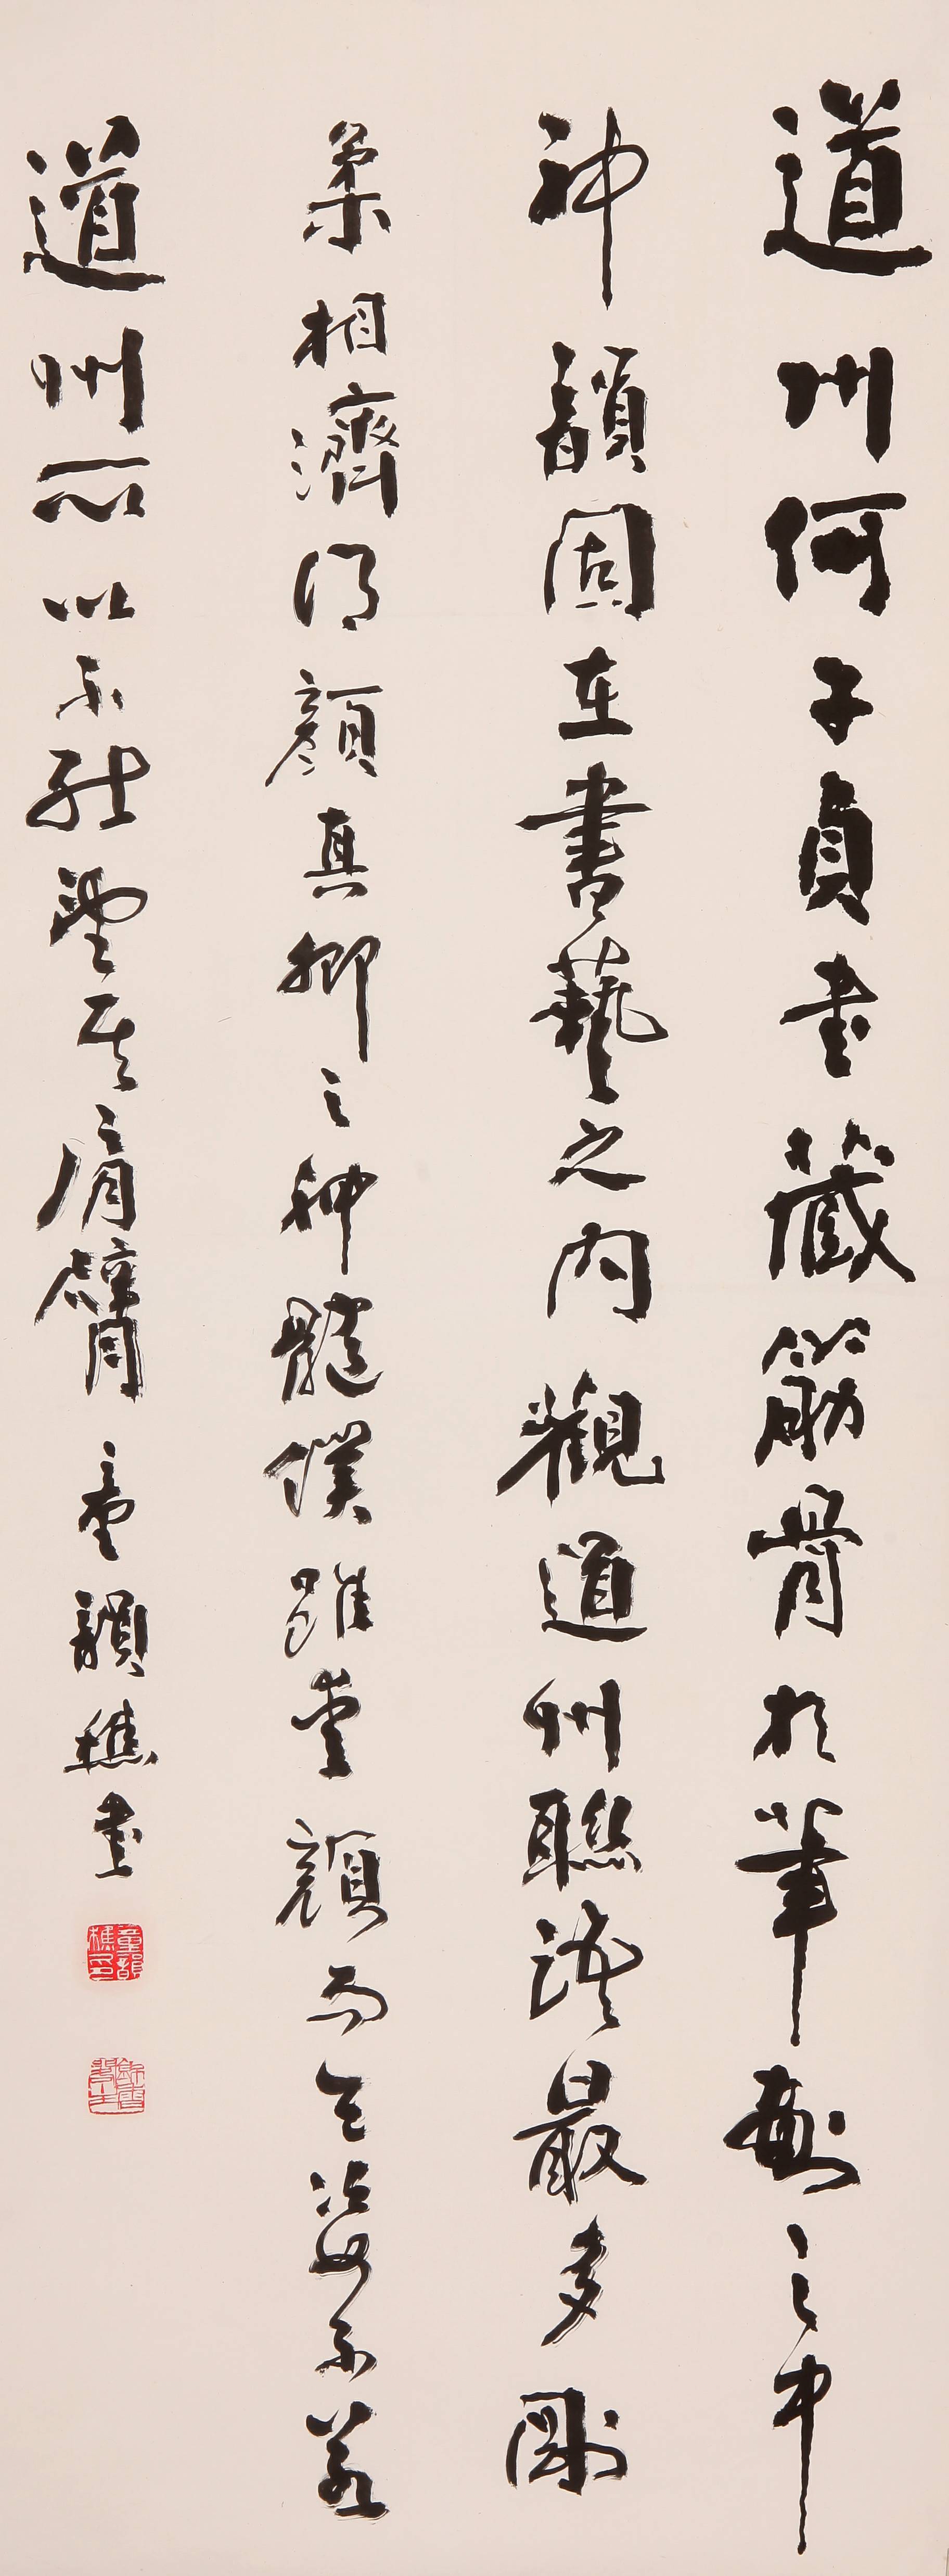 道州何子貞書藏筋骨於筆畫之中
神韻固在書藝之內觀道州聯語最多剛
柔相濟得顏真卿之神髓僕雖愛顏而天姿不若
道州所以不能望其肩臂 童韻樵書